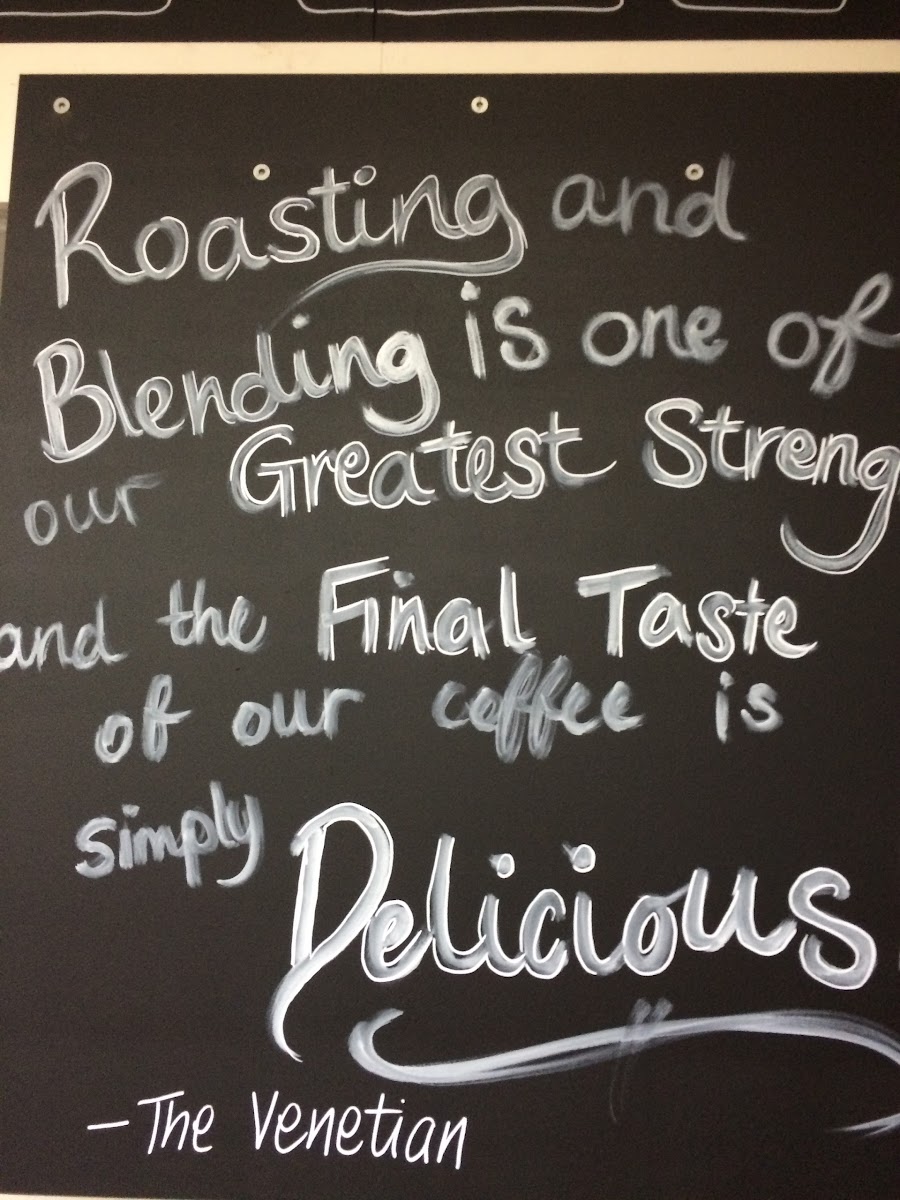 Roasting and
Blending is one of
our Greatest Streng
and the Final Taste
of our coffee is
simply Delicious
- The Venetian